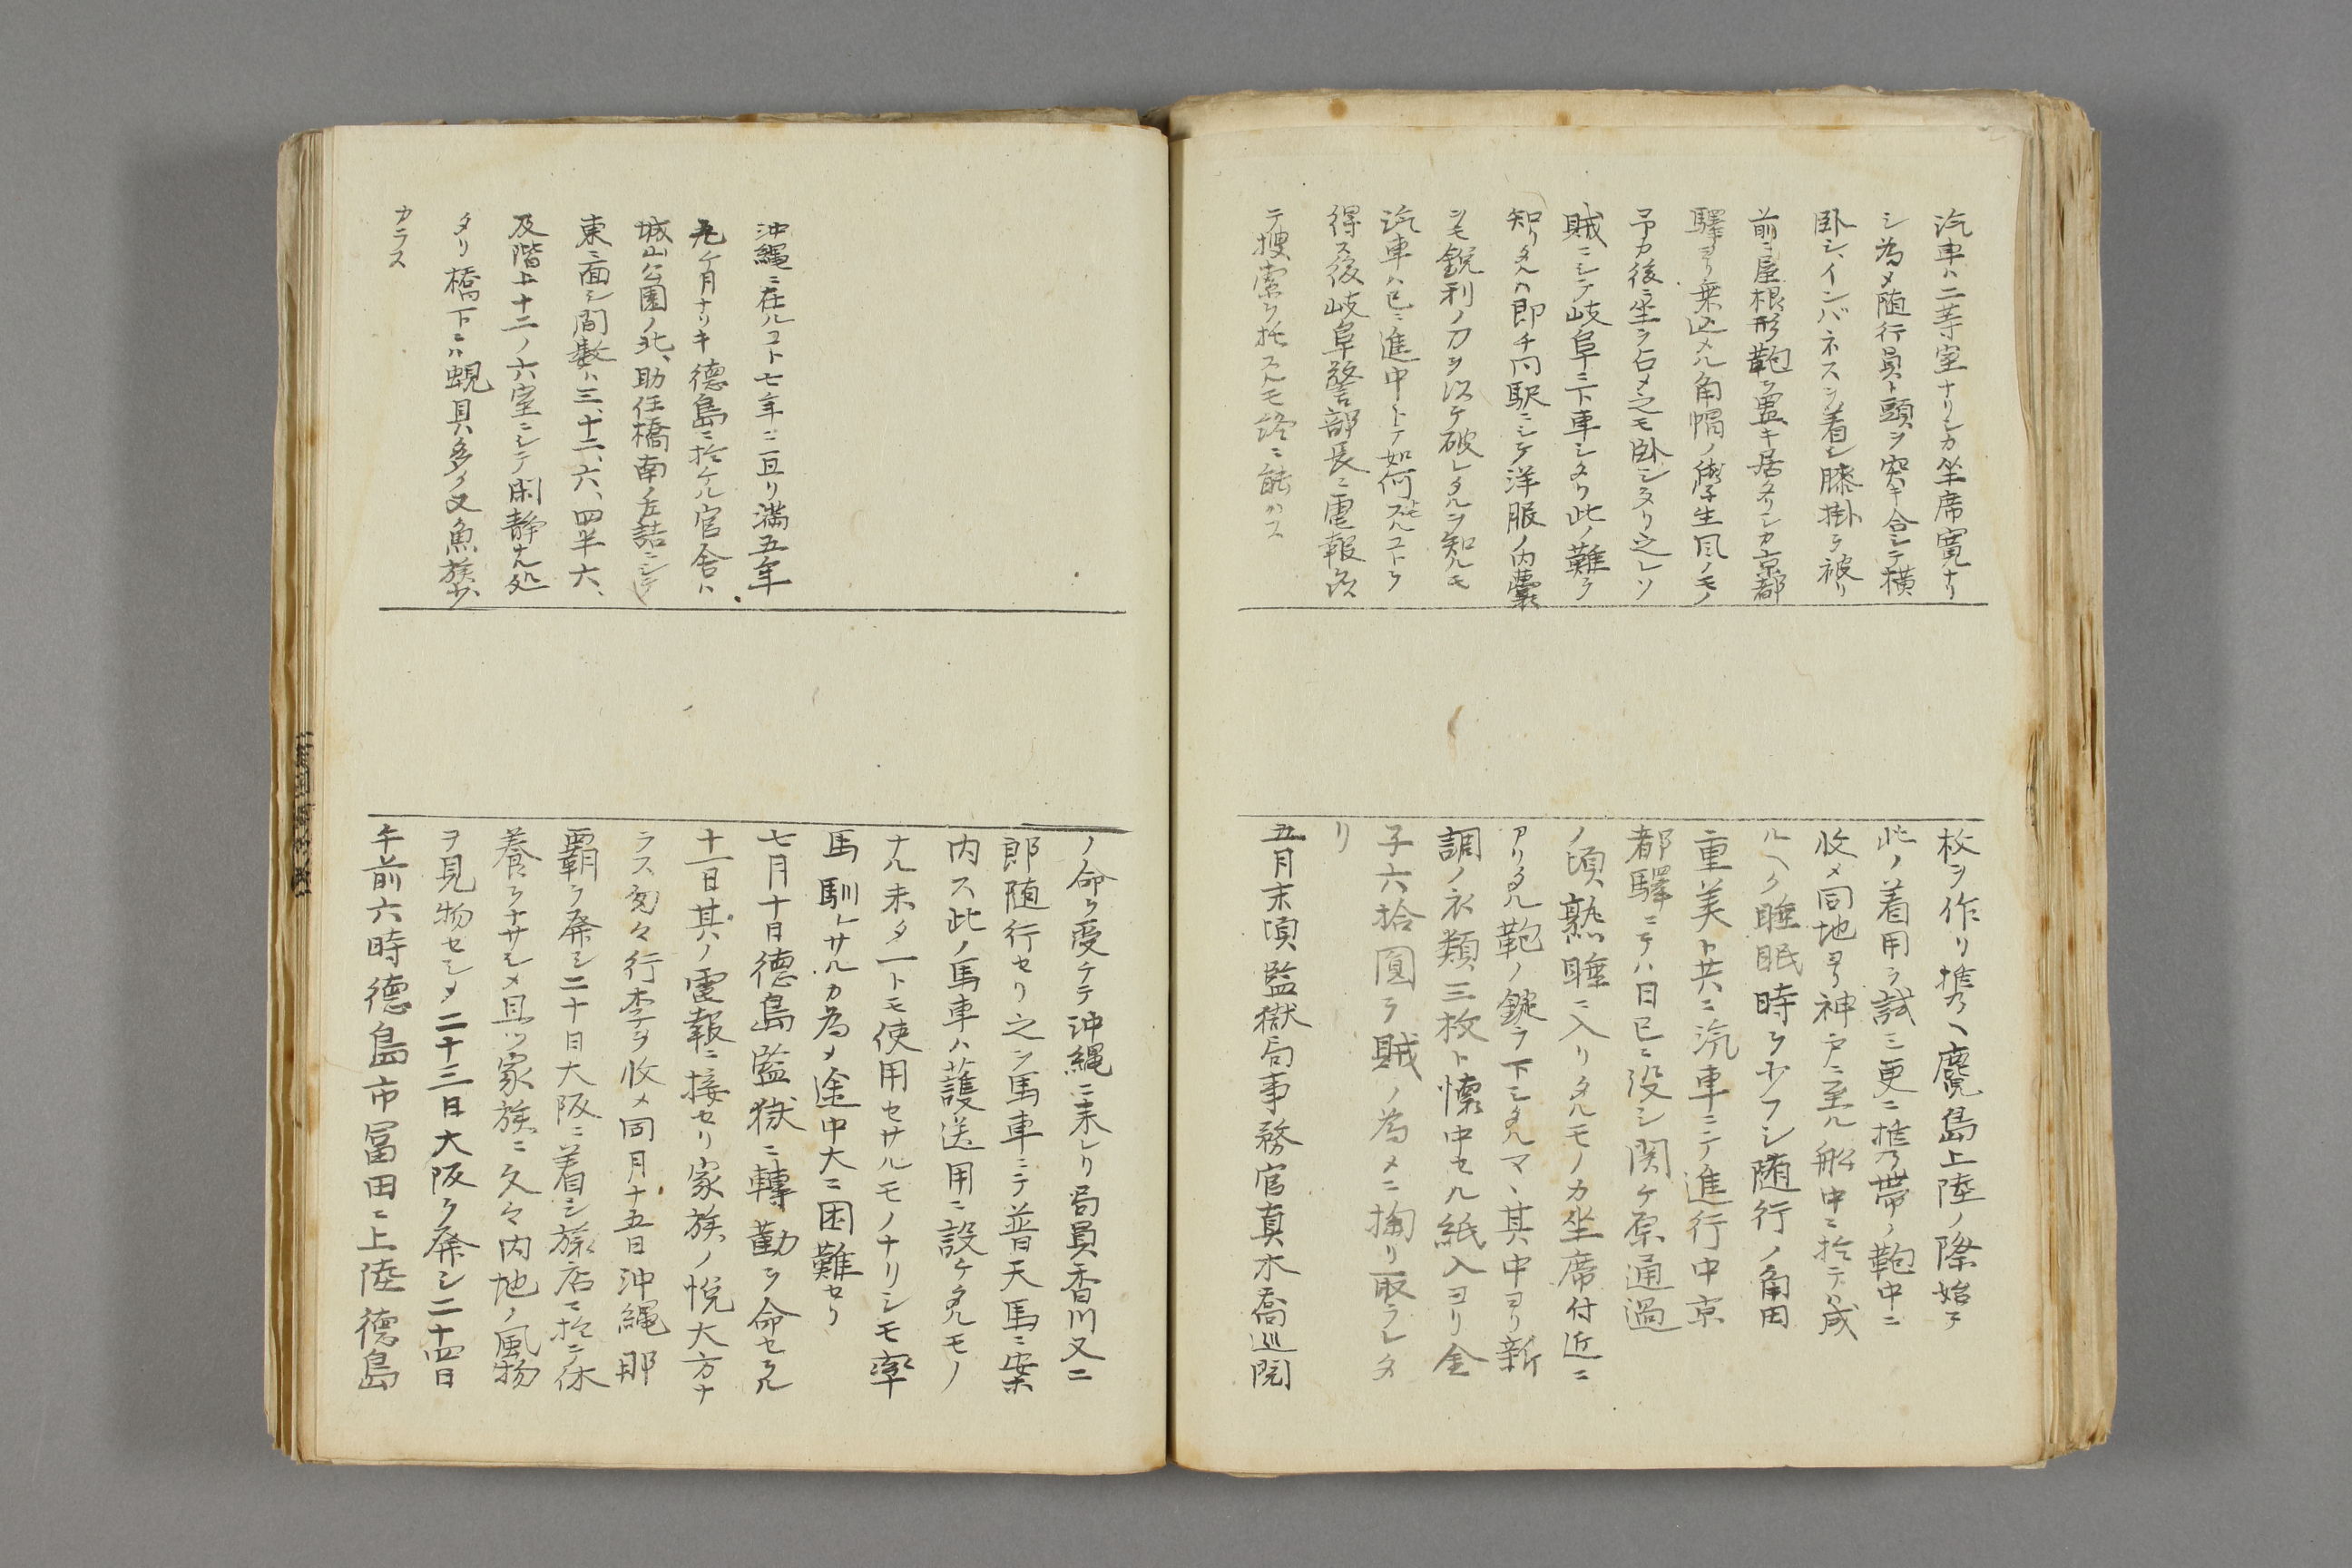 汽車ハ二等室ナリシカ坐席寛ナリ
シ為メ随行員ト頭ヲ突キ合シテ横
臥シ、インバネスヲ着シ膝掛ヲ被リ
前ニ屋根形鞄ヲ置キ居タリシカ京都
驛ヨリ乗込メル角帽ノ学生風ノモノ
予カ後ニ坐ヲ占メ之モ臥シタリ之レソ
賊ニシテ岐阜ニ下車シタリ此ノ難ヲ
知リタルハ即チ同駅ニシテ洋服ノ内嚢
シモ鋭利ノ刀ヲ以テ破レタルヲ知ルモ
汽車ハ已ニ進中トテ如何トモスルコトヲ
得ス後岐阜警部長ニ電報以
テ捜索ヲ托スルモ終ニ能ハス
枚ヲ作リ携ヘ麑島上陸ノ際始テ
此ノ着用ヲ試ミ更ニ携帯ノ鞄中ニ
收メ同地ヨリ神戸ニ至ル船中ニ於テハ成
ルヘク睡眠時ヲ少フシ随行ノ角田
重美ト共ニ汽車ニテ進行中京
都驛ニテハ日已ニ没シ関ケ原通過
ノ頃熟睡ニ入リタルモノカ坐席付近ニ
アリタル鞄ノ錠ヲ下シタルマヽ其中ヨリ新
調ノ衣類三枚ト懐中セル紙入ヨリ金
子六拾圓ヲ賊ノ為メニ掏リ取ラレタ
リ
五月末頃監獄局事務官真木喬巡閲
沖縄ニ在ルコト七年ニ亘リ満五年
九ケ月ナリキ徳島ニ於ケル官舎ハ
城山公園ノ北、助任橋南ノ左詰ニシテ
東ニ面シ間數ハ三、十二、六、四半六、
及階上十二ノ六室ニシテ閑静ナル処
タリ橋下ニハ蜆貝多ク又魚族少
カラス
ノ命ヲ受ケテ沖縄ニ来レリ局員香川又二
郎随行セリ之ヲ馬車ニテ普天馬ニ案
内ス此ノ馬車ハ護送用ニ設ケタルモノ
ナルモ未タ一トモ使用セサルモノナリシモ牽
馬馴レサルカ為メ途中大ニ困難セリ
七月十日徳島監獄ニ轉勤ヲ命セラル
十一日其ノ電報ニ接セリ家族ノ悦大方ナ
ラス匆々行李ヲ收メ同月十五日沖縄那
覇ヲ発シ二十日大阪ニ着シ旅店ニ於テ休
養ヲナサシメ且ツ家族ニ久々内地ノ風物
ヲ見物セシメ二十三日大阪ヲ発シ二十四日
午前六時徳島市冨田ニ上陸徳島